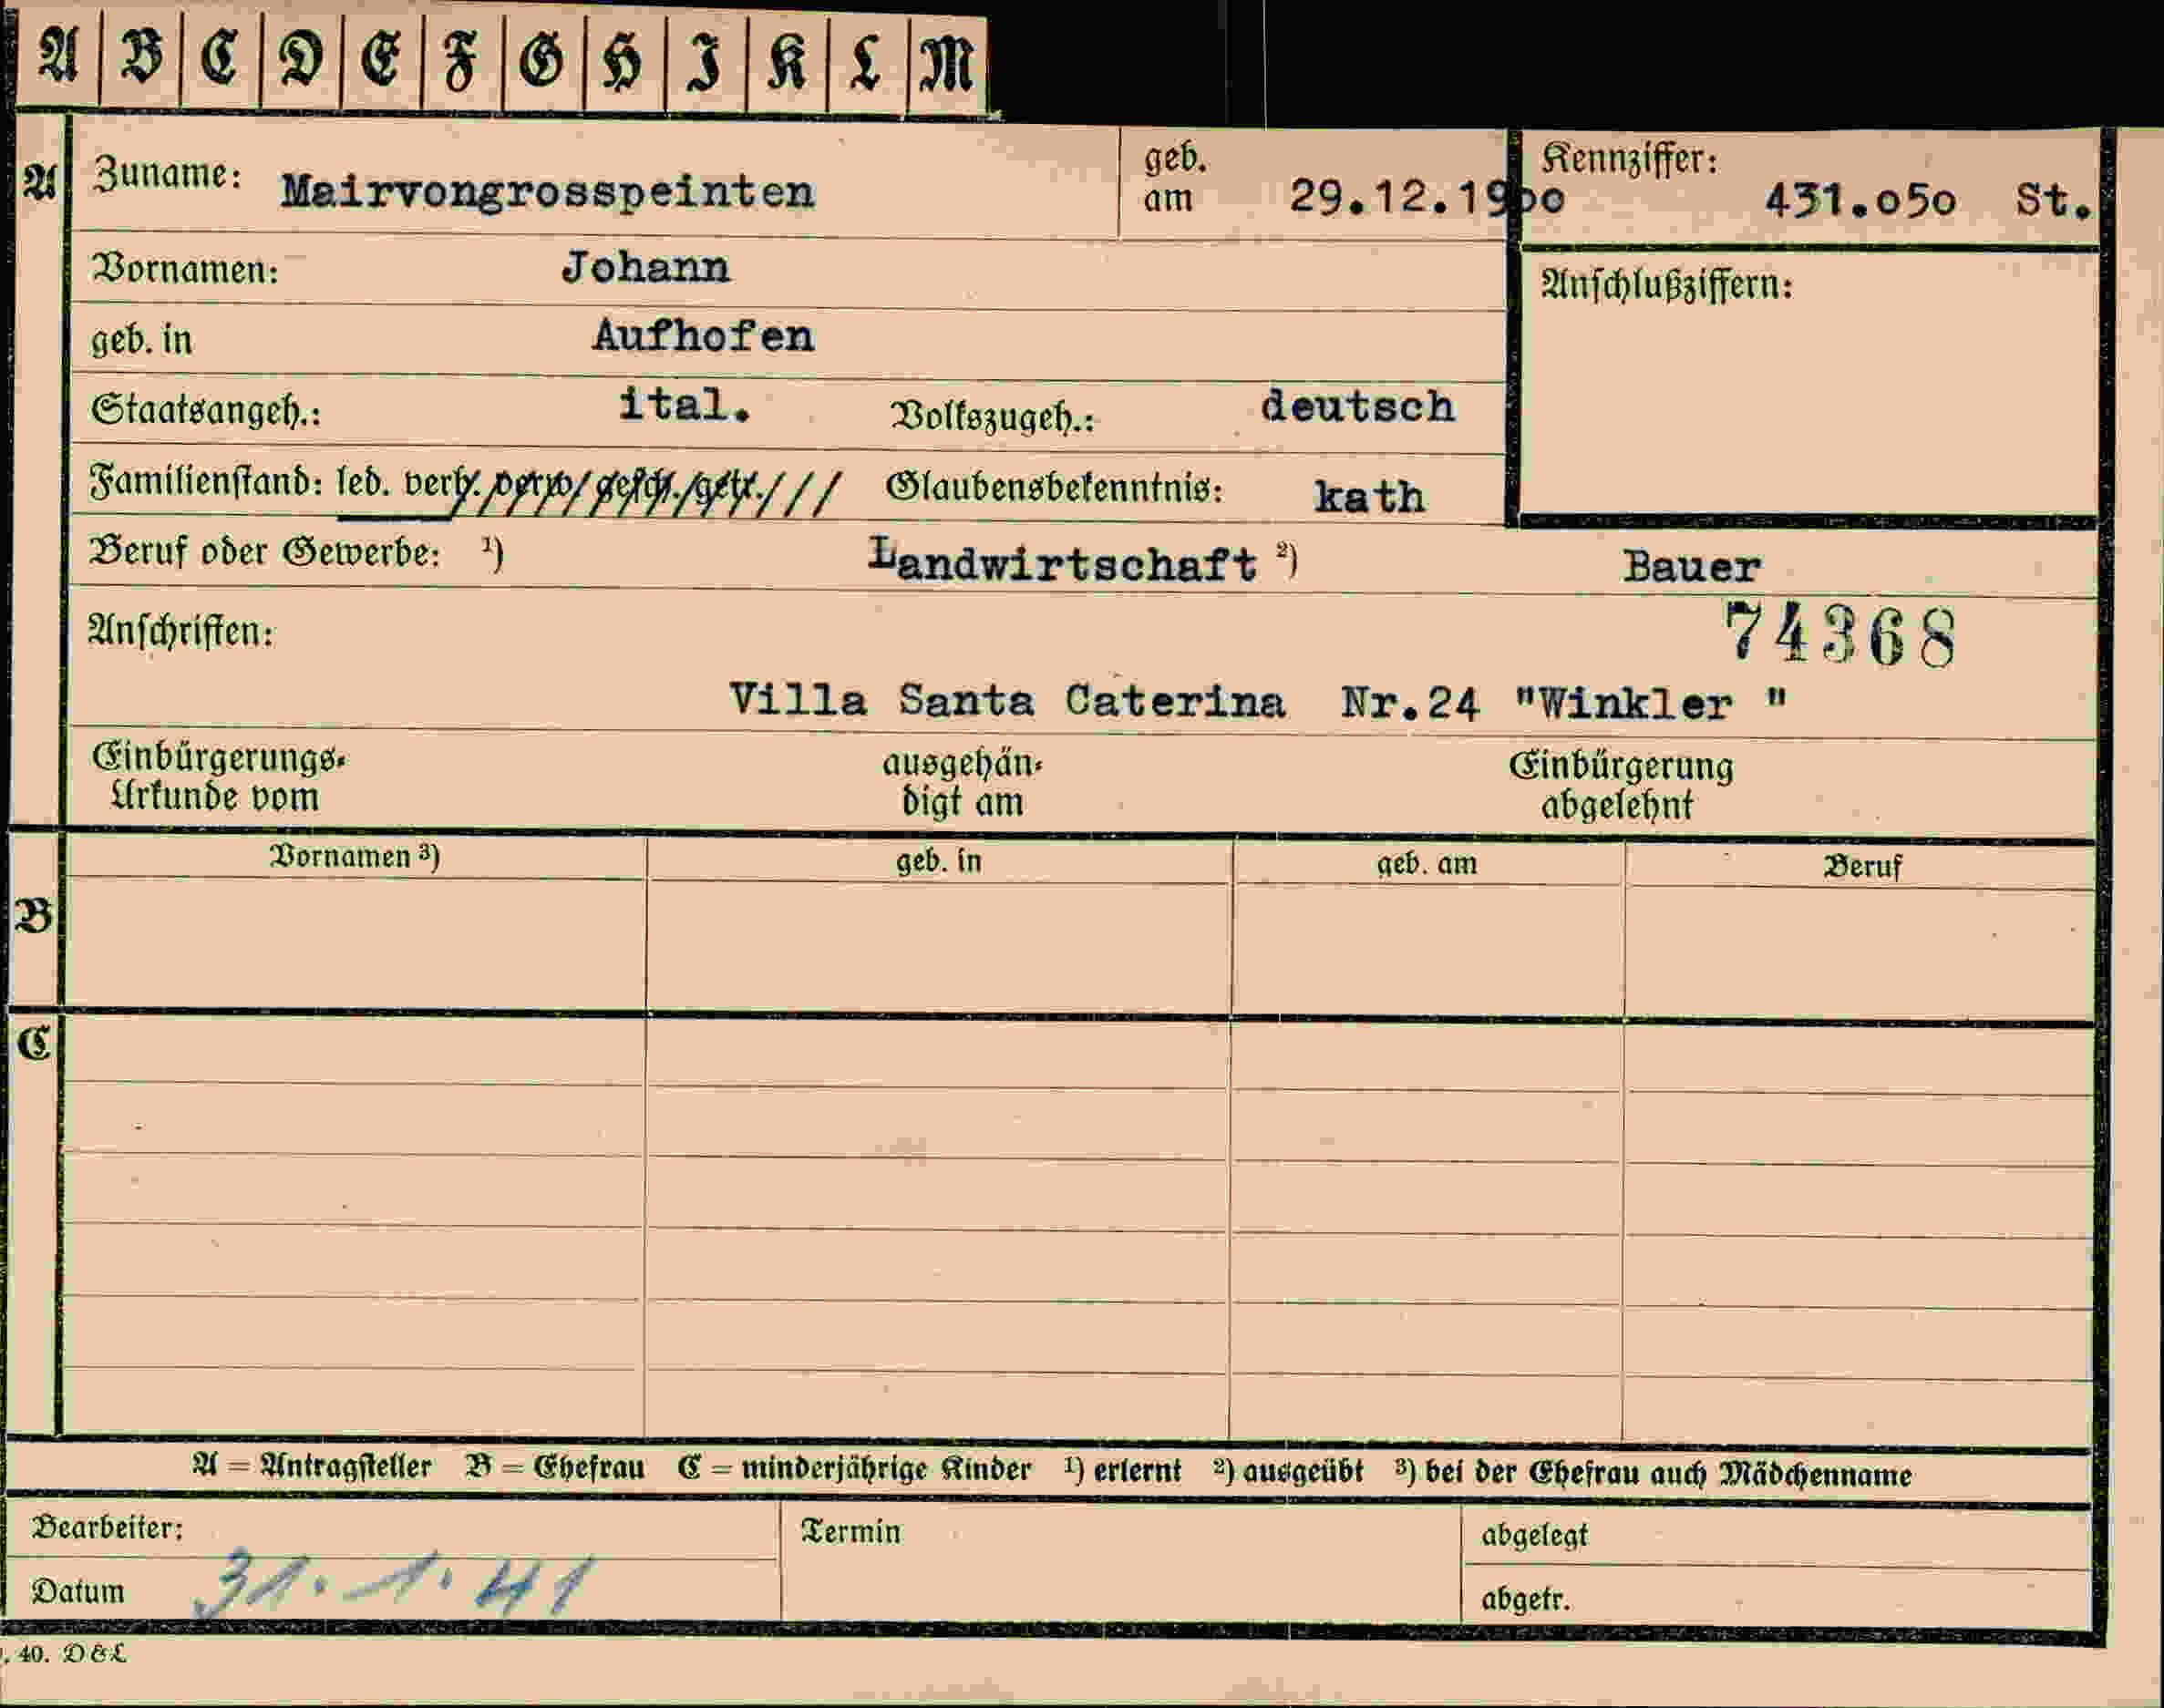 A B C D E F G H I K L M
A Zuname: Mairvongrosspeinten geb. am 29.12.19oo Kennziffer: 431.o5o St.
Vornamen: Johann
Anschlußziffern:
geb. in Aufhofen
Staatsangeh.: ital. Volkszugeh.: deutsch
Familienstand: led. verh. verw. gesch. getr./// Glaubensbekenntnis: kath
Beruf oder Gewerbe: ¹) Landwirtschaft ²) Bauer
Anschriften: 74368
Villa Santa Caterina Nr.24 "Winkler "
Einbürgerungs- ausgehän- Einbürgerung
Urkunde vom digt am abgelehnt
Vornamen ³) geb. in geb. am Beruf
B
C
A = Antragsteller B = Ehefrau C = minderjährige Kinder ¹) erlernt ²) ausgeübt ³) bei der Ehefrau auch Mädchenname
Bearbeiter: Termin abgelegt
Datum 31. 1. 41 abgetr.
. 40. D & L